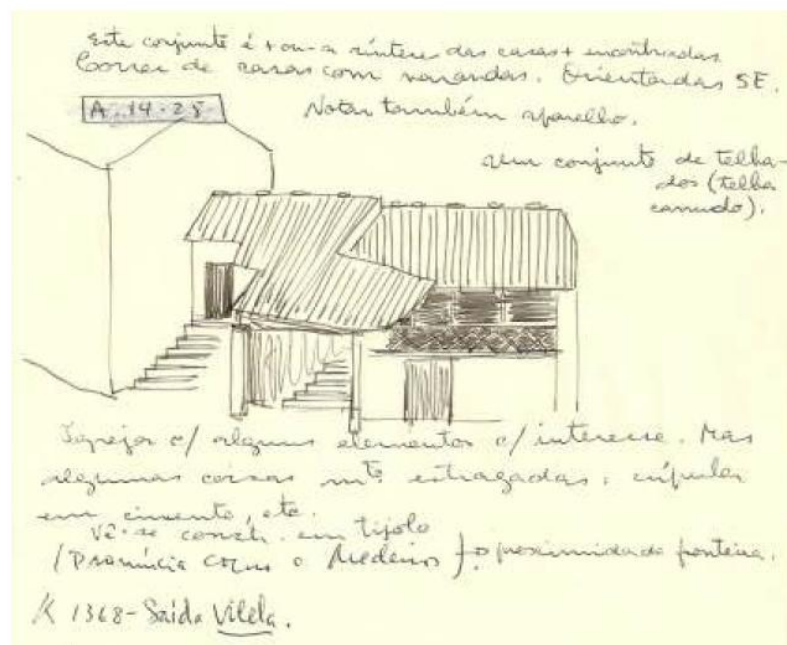 Este conjunto é + ou - a síntese das casas + encontradas.
Correr de casas com varandas. Orientadas SE.
A.14-25
Notar também aparelho.
conjunto de telha-
dos (telha
canudo).
Igreja c/ alguns elementos c/ interesse. Mas
algumas coisas mtº estragadas: cúpula
em cimento, etc.
Vê-se constr. em tijolo
(Pronúncia como o Medeiros) proximidade fronteira.
K 1368 - Saída Vilela.